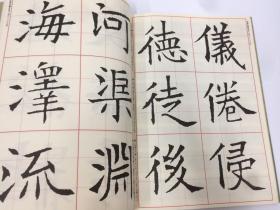 儀倦侵
徳徒後
河渠淵
海澤流